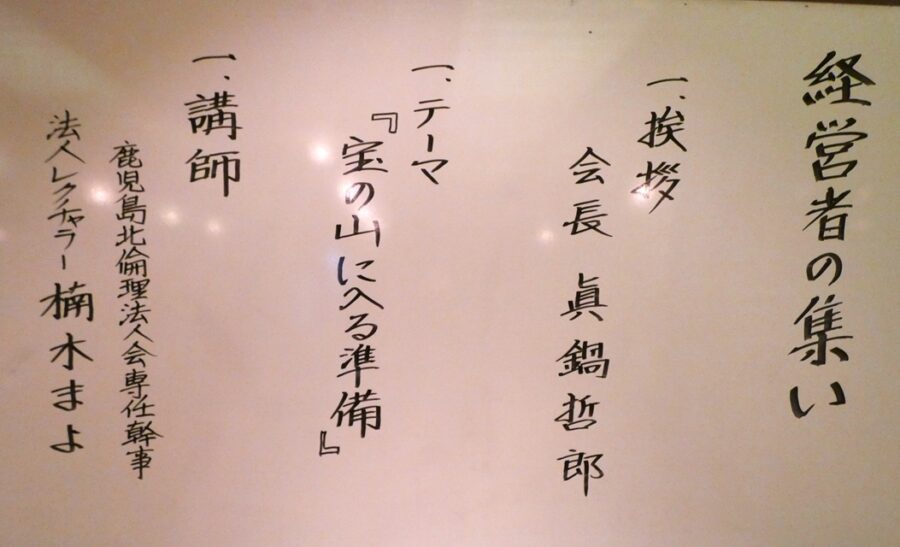 経営者の集い
一、挨拶
会長 眞鍋哲郎
一、テーマ
『宝の山に入る準備』
一、講師
鹿児島北倫理法人会専任幹事
法人レクチャラー 楠木まよ